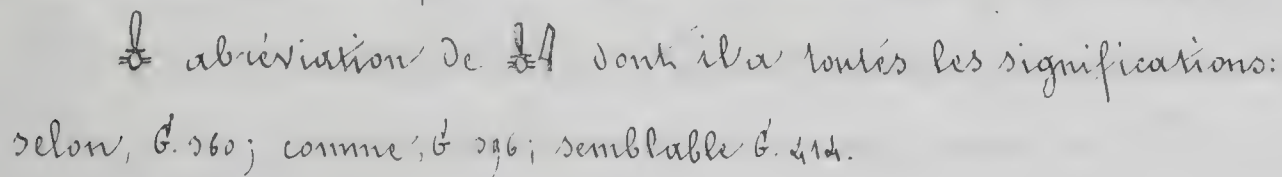 abréviation de dont il a toutes les significations:
selon, G. 360; comme, G 396; semblable G. 414.